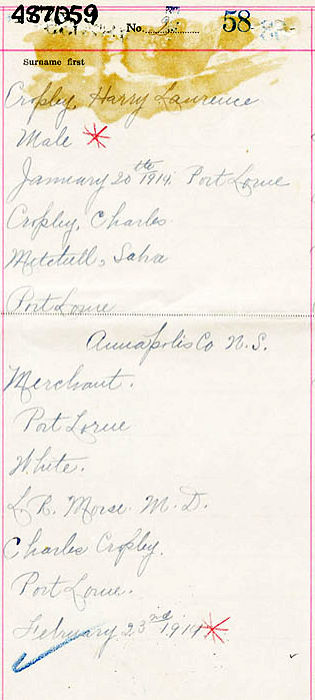 487059
No. 58
Surname first
Cropley, Harry Laurence
Male
January 20th 1914. Port Lorne
Cropley, Charles
Mitchell, Salra
Port Lorne
Annapolis Co N.S.
Merchant.
Port Lorne
White.
L. R. Morse. M. D.
Charles Cropley.
Port Lorne.
February 23nd 1914